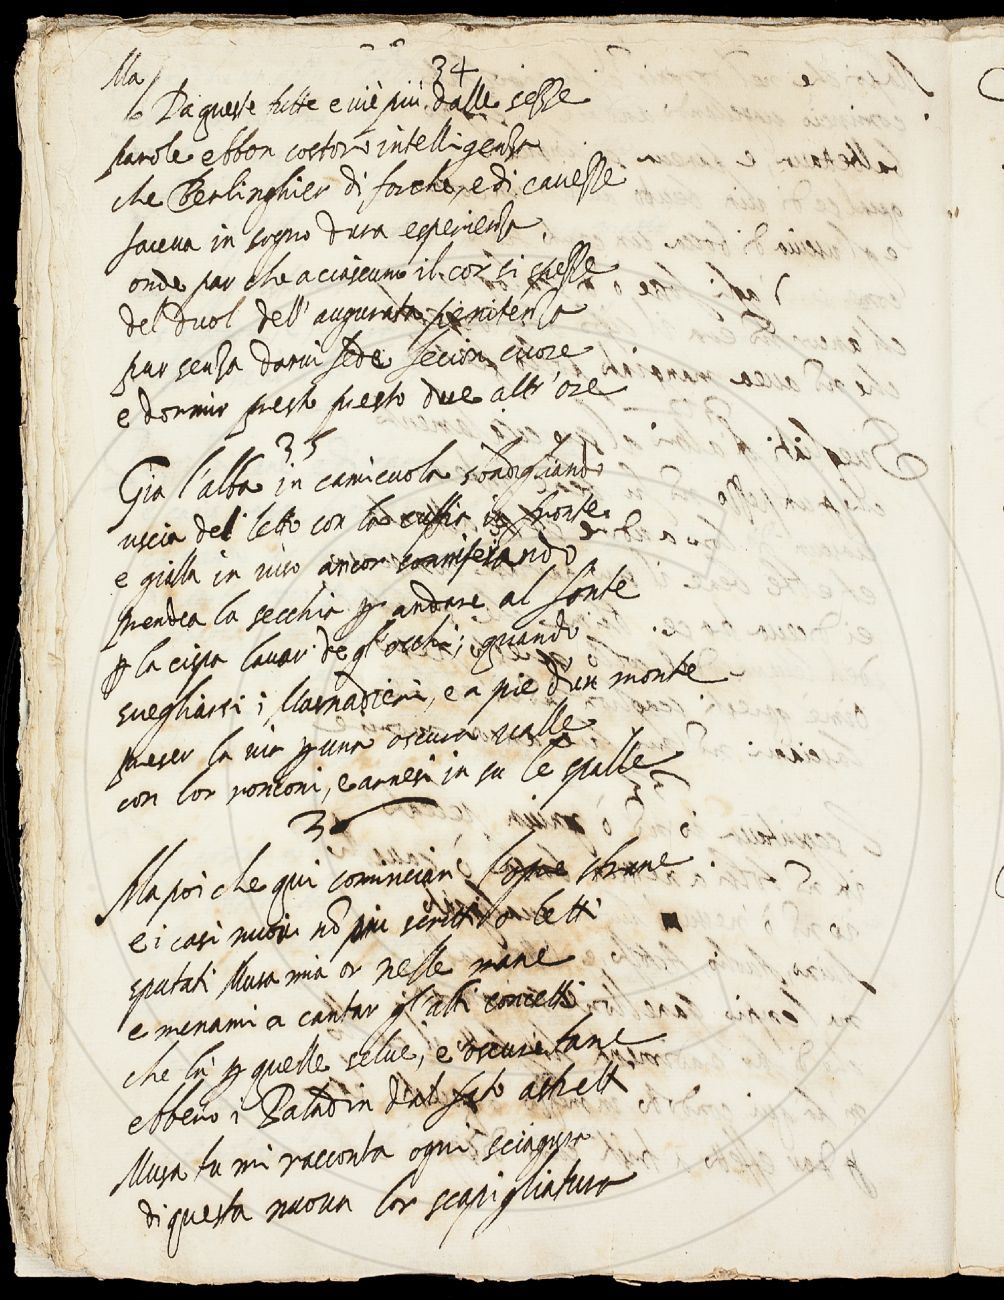 34
Ma
Da queste tutte e viè più dalle sesse
parole ebbon costor intelligenza
che Berlinghier di forche, e di cavesse
faceva in sogno dura esperienza
onde par che a ciascuno il cor si spesse
del duol dell' augurata penitenza
pur senza darvi fede
e dormir presto presto due altr' ore
35
Gia l'alba in camicuola sbadigliando
uscia del letto con la cuffia in fronte
e gialla in viso ancor sonniferando
prendea la secchia p andare al fonte
p la cispa lavar de gl' occhi; quando
svegliarsi i Masnadieri, e a piè d'un monte
preser la via p una oscura valle
con lor ronconi, e arnesi in su le spalle
36
Ma poi che qui comincian l'opre strane
e i casi nuovi nõ più scritti o letti
sputati Musa mia or nelle mane
e menami a cantar gl'alti concetti
che là p quelle selve, e oscure tane
ebbero i Paladin dal fato astretti
Musa tu mi racconta ogni sciagura
di questa nuova lor scapigliatura